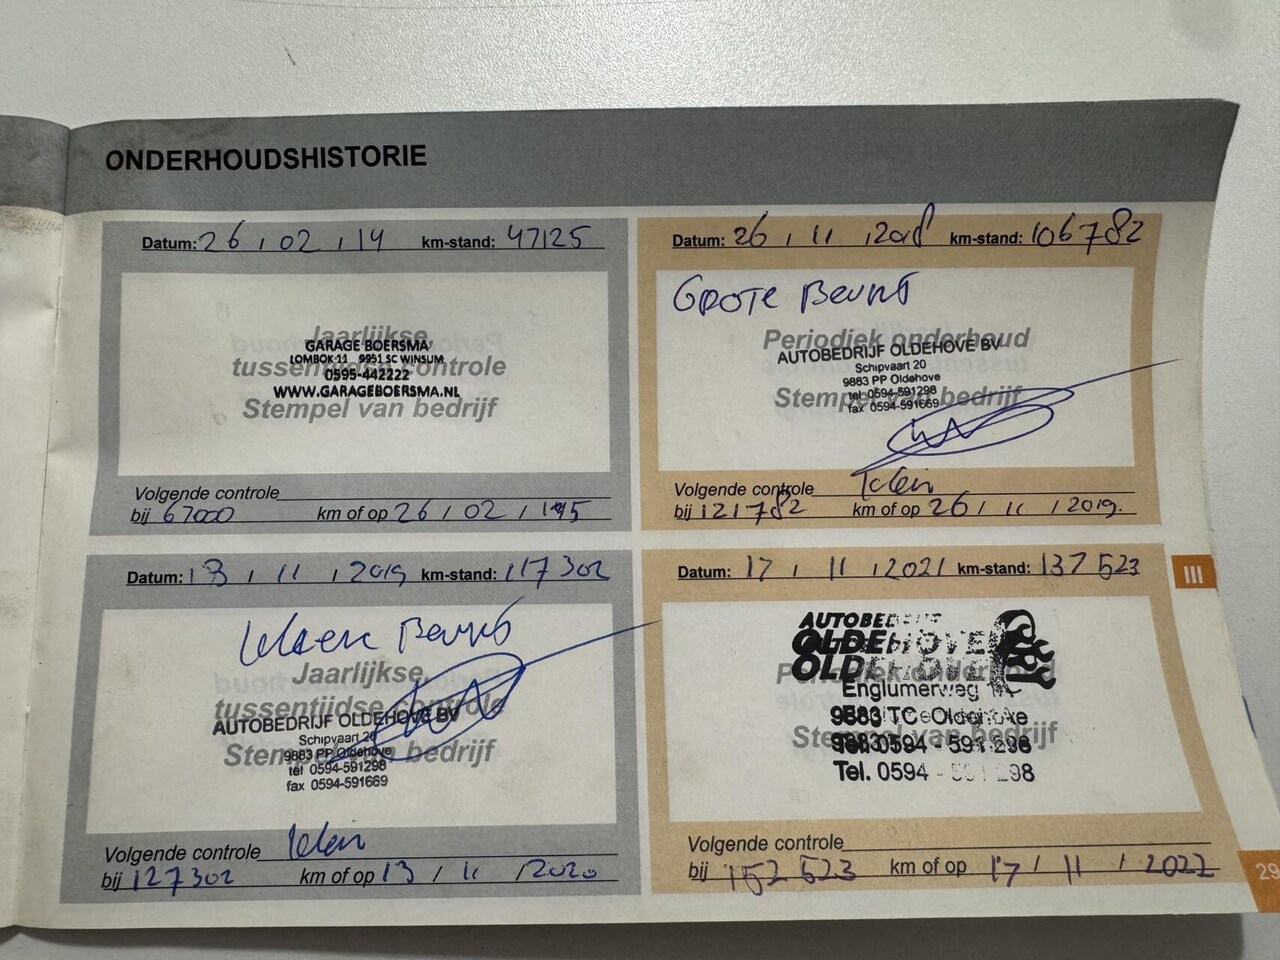 ONDERHOUDSHISTORIE
Datum: 26 / 02 / 14 km-stand: 47125
Jaarlijkse
GARAGE BOERSMA
LOMBOK 11 9951 SC WINSUM
tussentijdse controle
0595-442222
WWW.GARAGEBOERSMA.NL
Stempel van bedrijf
Volgende controle
bij 67000 km of op 26 / 02 / 15
Datum: 26 / 11 / 2018 km-stand: 106782
Grote Beurt
Periodiek onderhoud
AUTOBEDRIJF OLDEHOVE BV
Schipvaart 20
9883 PP Oldehove
tel 0594-591298
Stempel van bedrijf
fax 0594-591669
Volgende controle klein
bij 121782 km of op 26 / 11 / 2019.
Datum: 13 / 11 / 2019 km-stand: 117302
Kleine Beurt
Jaarlijkse
tussentijdse controle
AUTOBEDRIJF OLDEHOVE BV
Schipvaart 20
9883 PP Oldehove
Stempel van bedrijf
tel 0594-591298
fax 0594-591669
Volgende controle klein
bij 127302 km of op 13 / 11 / 2020
Datum: 17 / 11 / 2021 km-stand: 137523
AUTOBEDRIJF
OLDEHOVE
OLDEHOVE
Periodiek onderhoud
Englumerweg
9883 TC Oldehove
Stempel van bedrijf
Tel. 0594 - 591 298
Tel. 0594 - 591 298
Volgende controle
bij 152523 km of op 17 / 11 / 2022
III
29